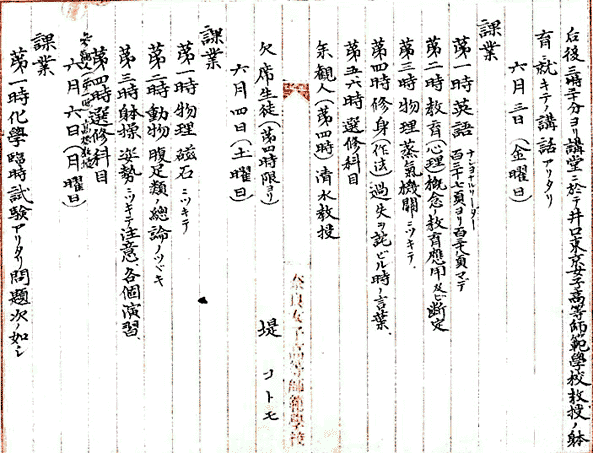 后後二時三十分ヨリ講堂ニ於テ井口東京女子高等師範學校教授ノ躰
育ニ就キテノ講話アリタリ
六月三日(金曜日)
課業
第一時英語 ナショナルリーダー 百二十七頁ヨリ百三十八頁マデ
第二時教育(心理)概念ノ教育應用及ビ断定
第三時物理 蒸氣機關ニツキテ
第四時修身(作法)過失ヲ詫ビル時ノ言葉
第五六時選修科目
参観人(第四時)清水教授
奈良女子高等師範學校
欠席生徒(第四時限ヨリ) 堤 コトモ
六月四日(土曜日)
課業
第一時物理 磁石ニツキテ
第二時動物 腹足類ノ總論ノツヅキ
第三時躰操 姿勢ニツキテ注意、各個演習
第四時選修科目
六月六日(月曜日)
課業
第一時化學臨時試驗アリタリ問題次ノ如シ